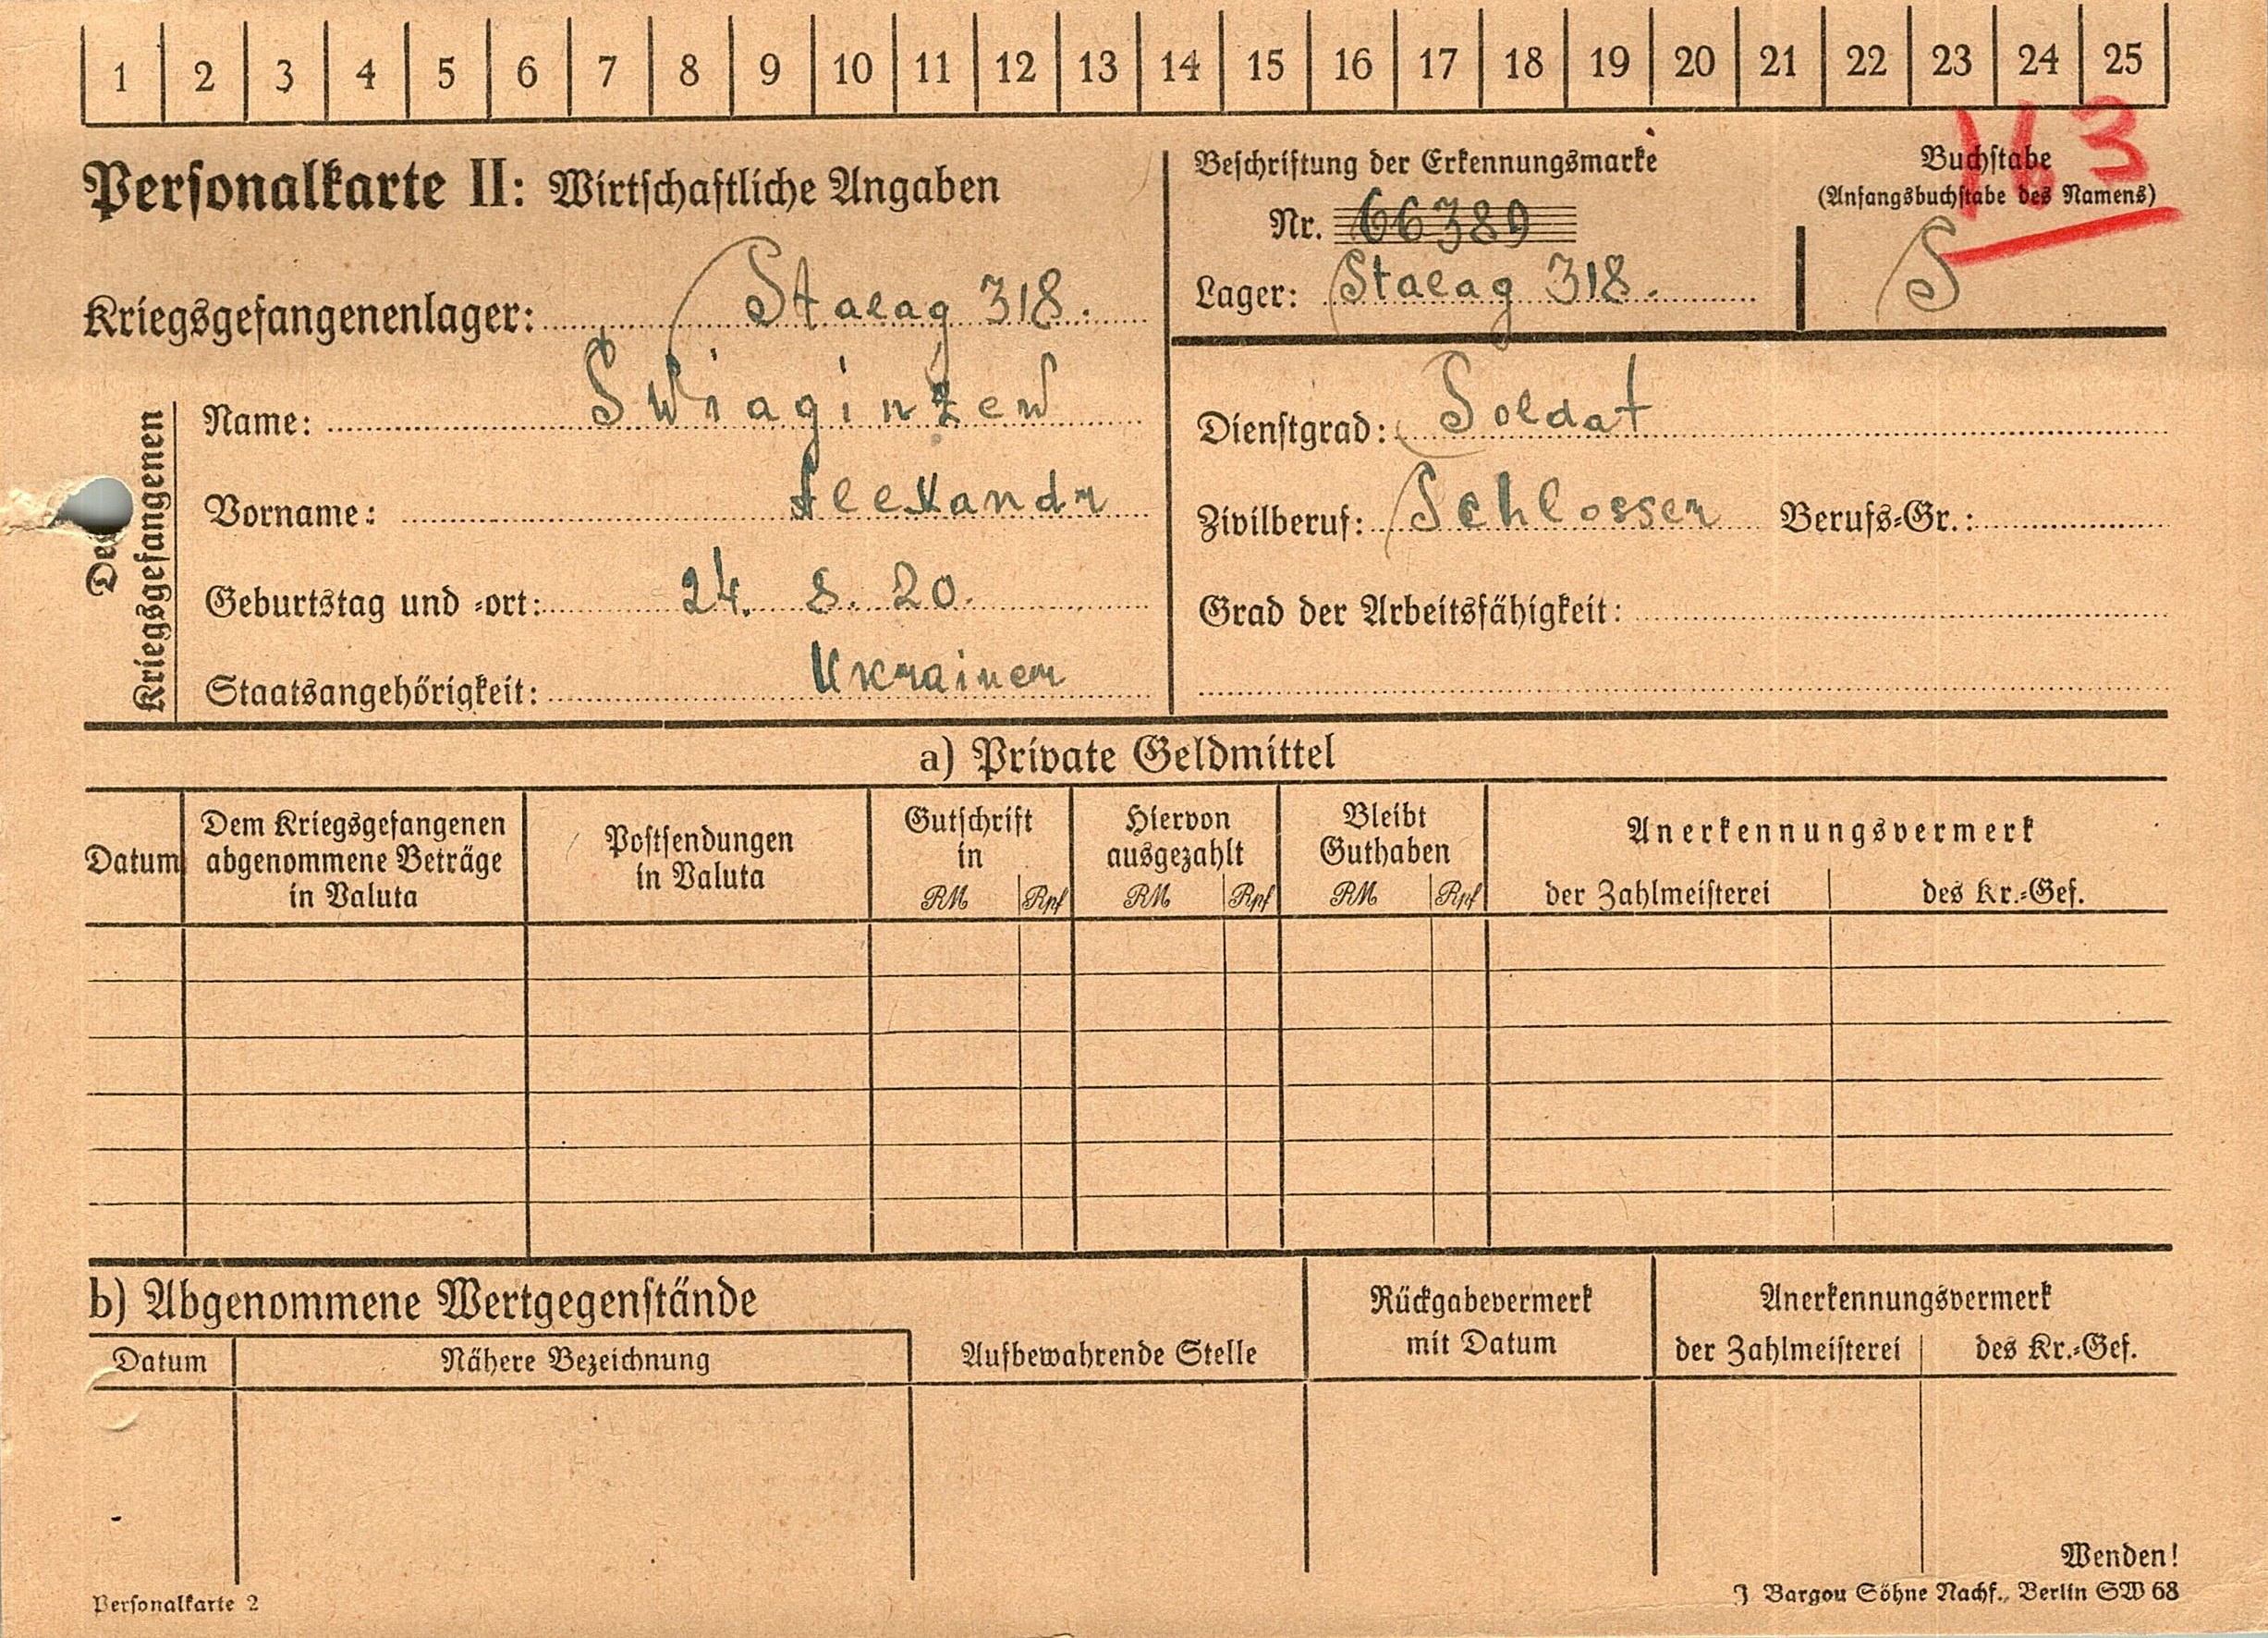 1 2 3 4 5 6 7 8 9 10 11 12 13 14 15 16 17 18 19 20 21 22 23 24 25
163
Personalkarte II: Wirtschaftliche Angaben
Kriegsgefangenenlager: Stalag 318.
Beschriftung der Erkennungsmarke
Nr. 66389
Lager: Stalag 318.
Buchstabe
(Anfangsbuchstabe des Namens)
S
Des Kriegsgefangenen
Name: Swiaginzew
Vorname: Alexandr
Geburtstag und -ort: 24. 8. 20.
Staatsangehörigkeit: Ukrainer
Dienstgrad: Soldat
Zivilberuf: Schlosser Berufs-Gr.:
Grad der Arbeitsfähigkeit:
a) Private Geldmittel
Datum
Dem Kriegsgefangenen
abgenommene Beträge
in Valuta
Postsendungen
in Valuta
Gutschrift
in
RM Rpf
Hiervon
ausgezahlt
RM Rpf
Bleibt
Guthaben
RM Rpf
Anerkennungsvermerk
der Zahlmeisterei des Kr.-Gef.
b) Abgenommene Wertgegenstände
Datum Nähere Bezeichnung
Aufbewahrende Stelle
Rückgabevermerk
mit Datum
Anerkennungsvermerk
der Zahlmeisterei des Kr.-Gef.
Wenden!
Personalkarte 2
J Bargou Söhne Nachf., Berlin SW 68